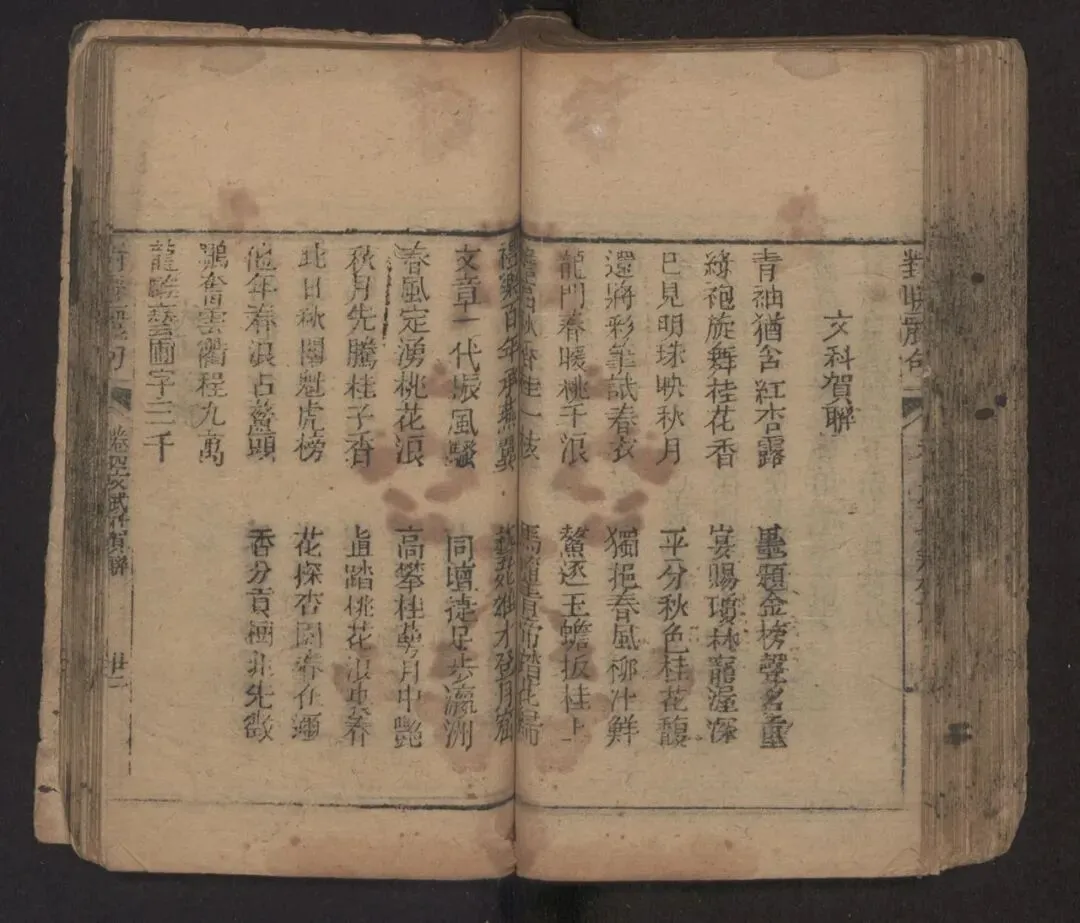 文科賀聯
青袖猶含紅杏露 墨題金榜聲名重
綠袍旋舞桂花香 宴賜瓊林寵渥深
已見明珠映秋月 平分秋色桂花馥
還將彩筆試春衣 獨挹春風柳汁鮮
龍門春暖桃千浪 鰲逐玉蟾扳桂上
百年承燕翼
文章一代振風騷 同壇捷足步瀛洲
春風定湧桃花浪 高攀桂萼月中艷
秋月先騰桂子香 直踏桃花浪裏春
此日秋闈魁虎榜 花探杏園春在邇
他年春浪占鰲頭 香分貢樹兆先徵
鵬奮雲衢程九萬
龍 藝圃字三千
卷四文武科賀聯
廿二